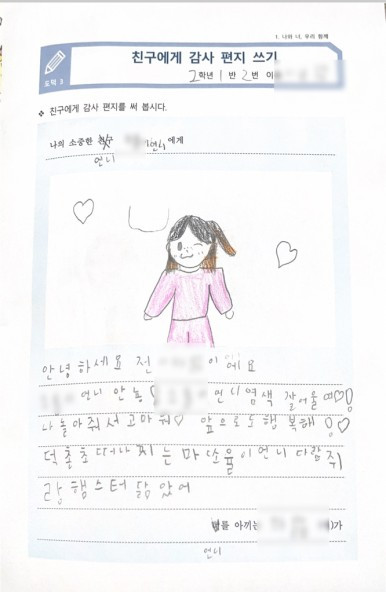 1. 나와 너, 우리 함께
도덕 3
친구에게 감사 편지 쓰기
2학년 1반 2번 이
❖ 친구에게 감사 편지를 써 봅시다.
나의 소중한 친구 언니에게
언니
안녕하세요 전 이에요
언니 안뇽 언니염색 잘어울여♡!
나놀아줘서고마워♡ 앞으로도행복해 ♡
언니다람쥐
랑햄스터닮았어
를 아끼는 가
언니